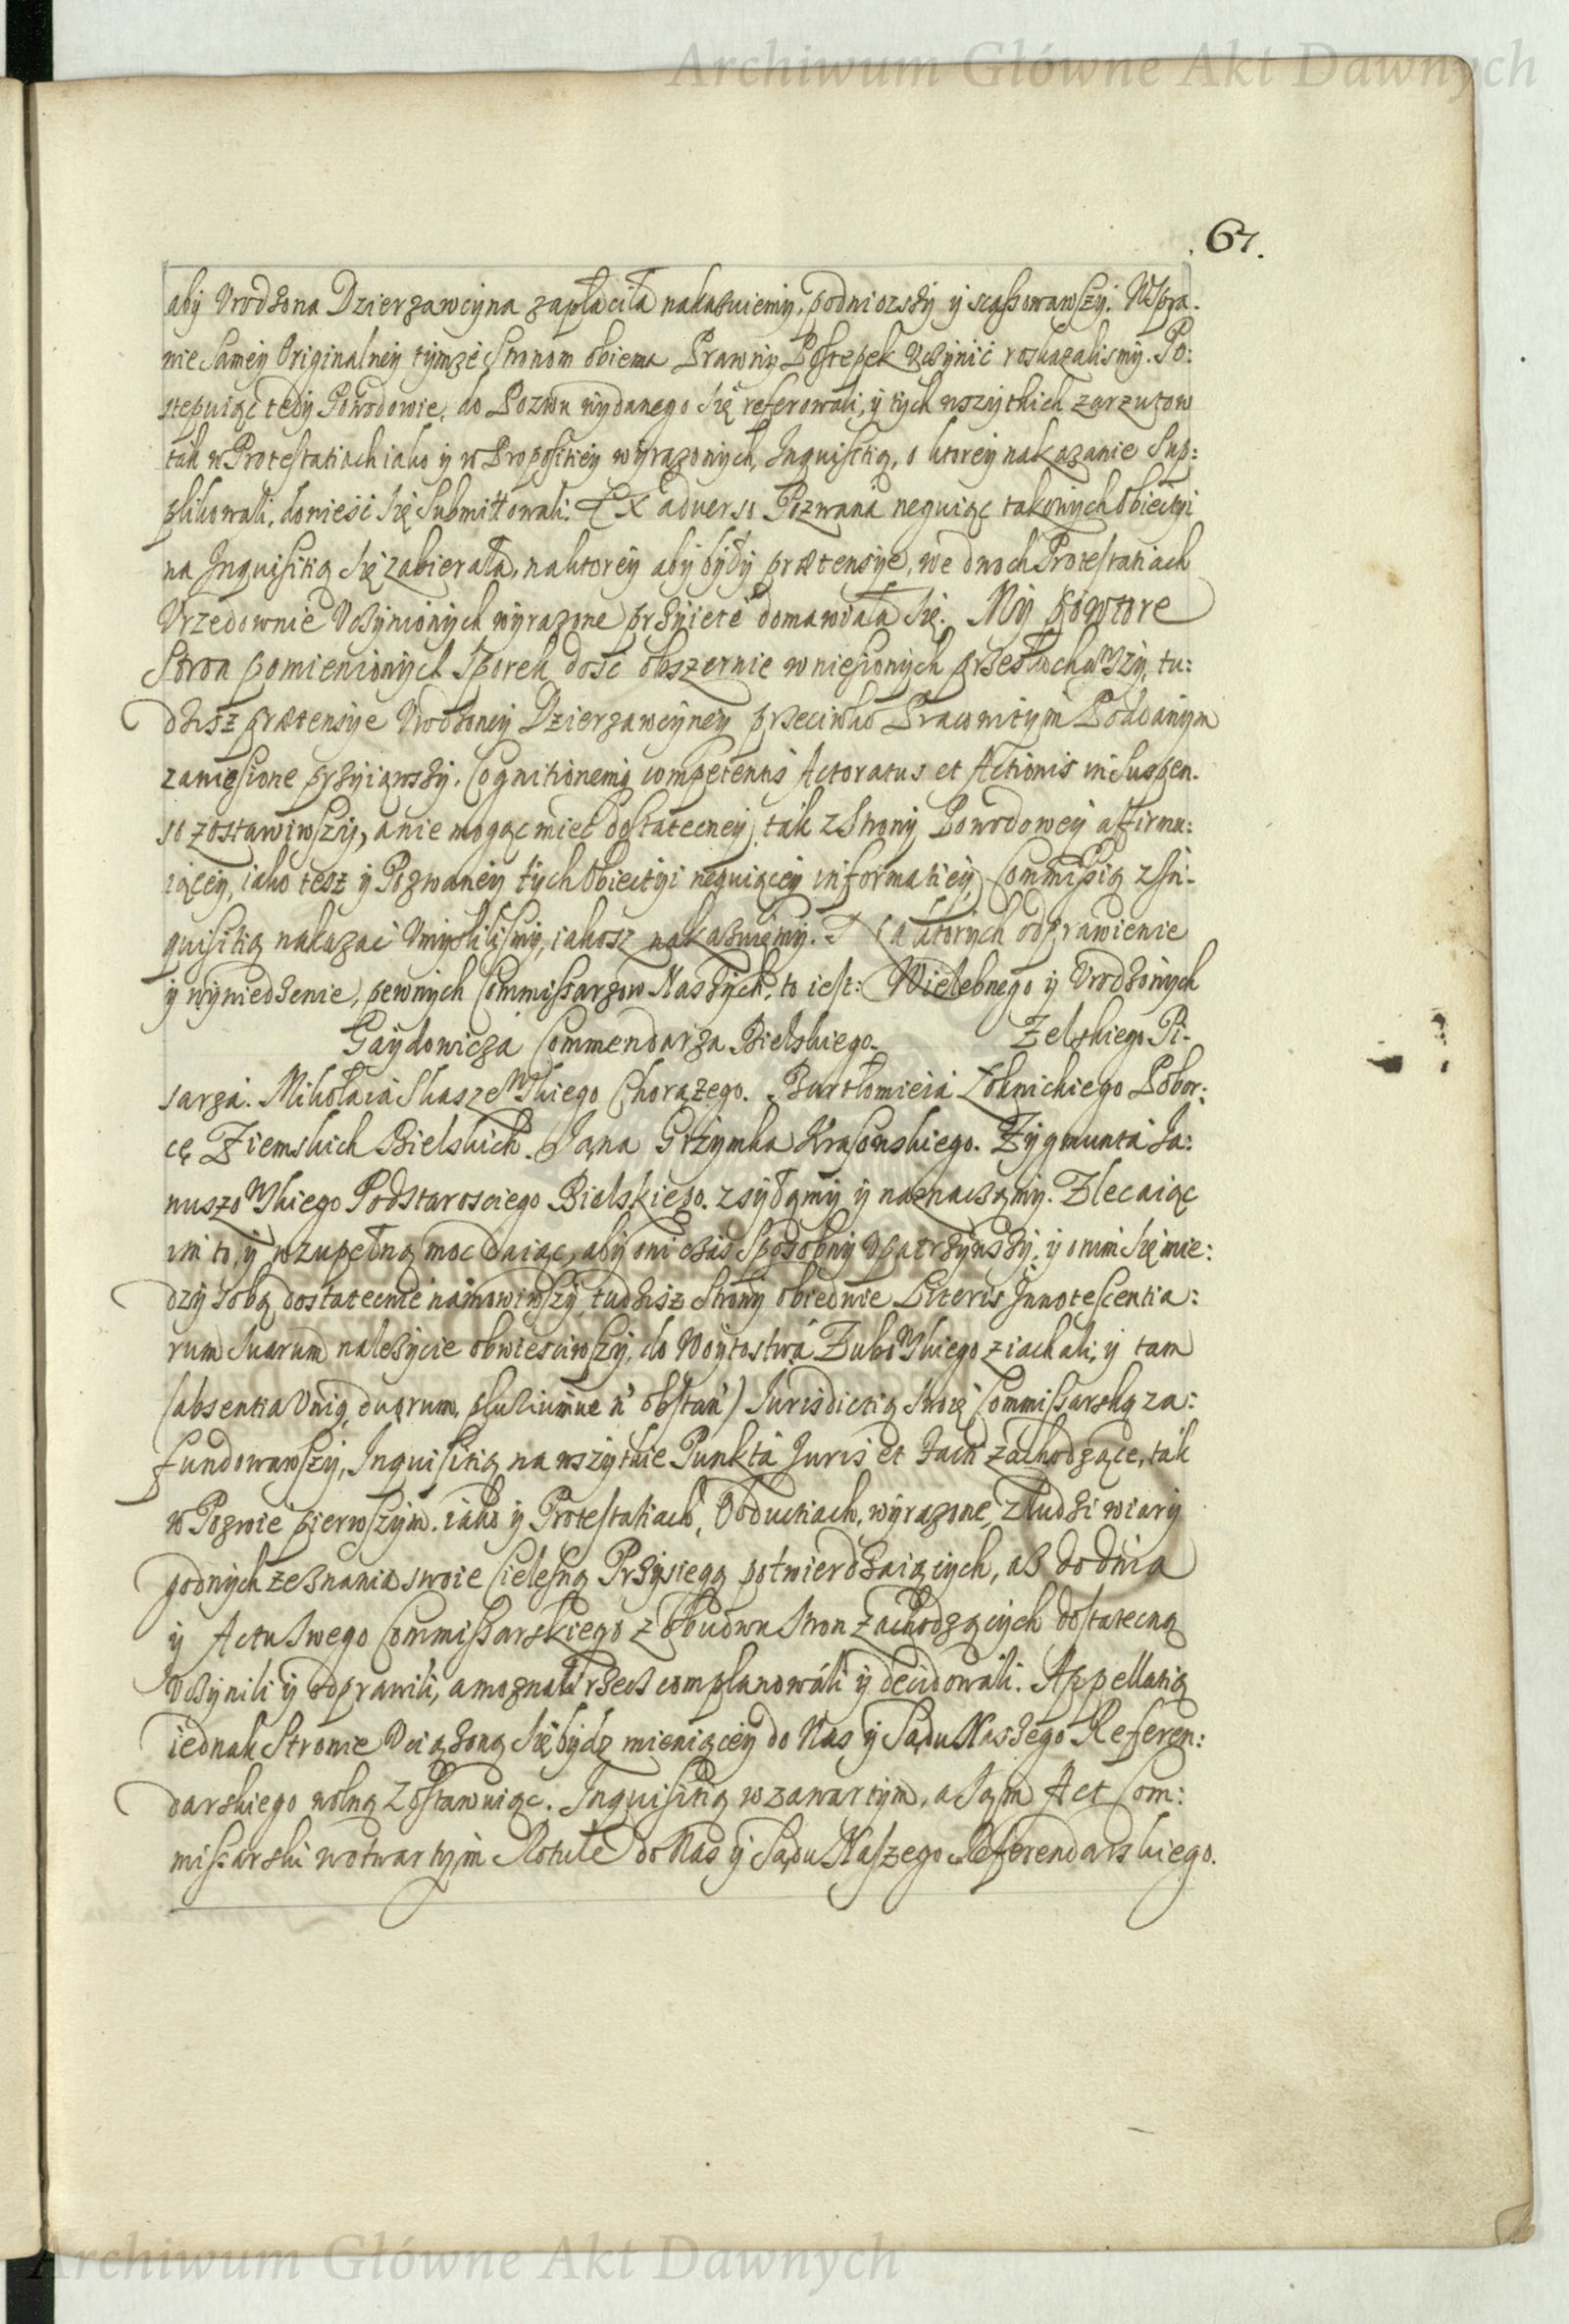 Archiwum Główne Akt Dawnych
67.
aby Vrodzona Dzierzawcyna zapłaciła nakazuiemy, podniozszy y scassowawszy. W spra-
nie samey Originalney tymże stronom obiema Prawny Postepek vczynić roskazalismy. Po:
stępuiąc tedy Powodowie, do Pozwu wydanego się referowali, y tych wszytkich zarzutow
tak w Protestatiach iako y w Propositiey wyrazonych, Inquisitią, o ktorey nakazanie sup:
plikowali, dowieść się submittowali. Ex adverso Pozwana neguiąc takowych Obiectyi
na Inquisitią się zabierała, na ktorey aby były prætensye, we dwoch Protestatiach
Vrzedownie Vczynionych wyrazone przyięte domawiała się. My powtore
Stron pomienionych sporek dość obszernie wniesionych przesłuchawszy, tu:
dzisz prætensye Vrodzoney Dzierzawcyney przeciwko Pracowitym Poddanym
zaniesione przyiąwszy. Cognitionemq competentis Actoratus et Actionis in suspen-
so zostawiwszy, a nie mogąc mieć dostateczney, tak z strony Powodowey affirmu:
iącey, iako tesz y Pozwaney tych Obiectyi neguiącey informatiey, Commissią z In-
quisitią nakazać Vmyslilismy, iakosz nakazuiemy. Na ktorych odprawienie
y wywiedzenie, pewnych Commissarzow Naszych, to iest: Wielebnego y Vrodzonych
Gaydowicza Commendarza Bielskiego. Zelskiego Pi-
sarza. Mikołaia Skaszewskiego Chorążego. Bartłomieia Żołnickiego Pobor:
cę Ziemskich Bielskich. Jana Grzymka Krasowskiego. Zygmunta Ja:
nuszowskiego Podstarosciego Bielskiego. zsyłamy y naznaczamy. Zlecaiąc
im to, y w zupełną moc daiąc, aby oni czas sposobny vpatrzywszy, y o nim się mie:
dzy sobą dostatecznie namowiwszy, tudzisz strony obiedwie Literis Innotescentia:
rum suarum nalezycie obwiesciwszy, do Woytostwa Zubowskiego ziachali, y tam
(absentia vnią, duorum, pluriumue n obstan) Iurisdictią swoię Commissarską za:
fundowawszy, Inquisitią na wszytkie Punkta Juris et facti zachodzące, tak
w Pozwie pierwszym. iako y Protestatiach, Obductiach, wyrazone, z ludzi wiary
godnych zeznania swoie Cielesną Przysiegą potwierdzaiących, asz do dnia
y Actu swego Commissarskiego z obudwu stron zachodzących dostateczną
Vczynili y odprawili, a możnali rzecz complanowali y decidowali. Appellatią
iednak stronie Vciązoną się bydz mieniącey do Nas y Sądu Naszego Referen:
darskiego wolną zostawuiąc. Inquisitią w zawartym, a sam Act Com:
missarski w otwartym Rotule do Nas y Sądu Naszego Referendarskiego.
Archiwum Główne Akt Dawnych